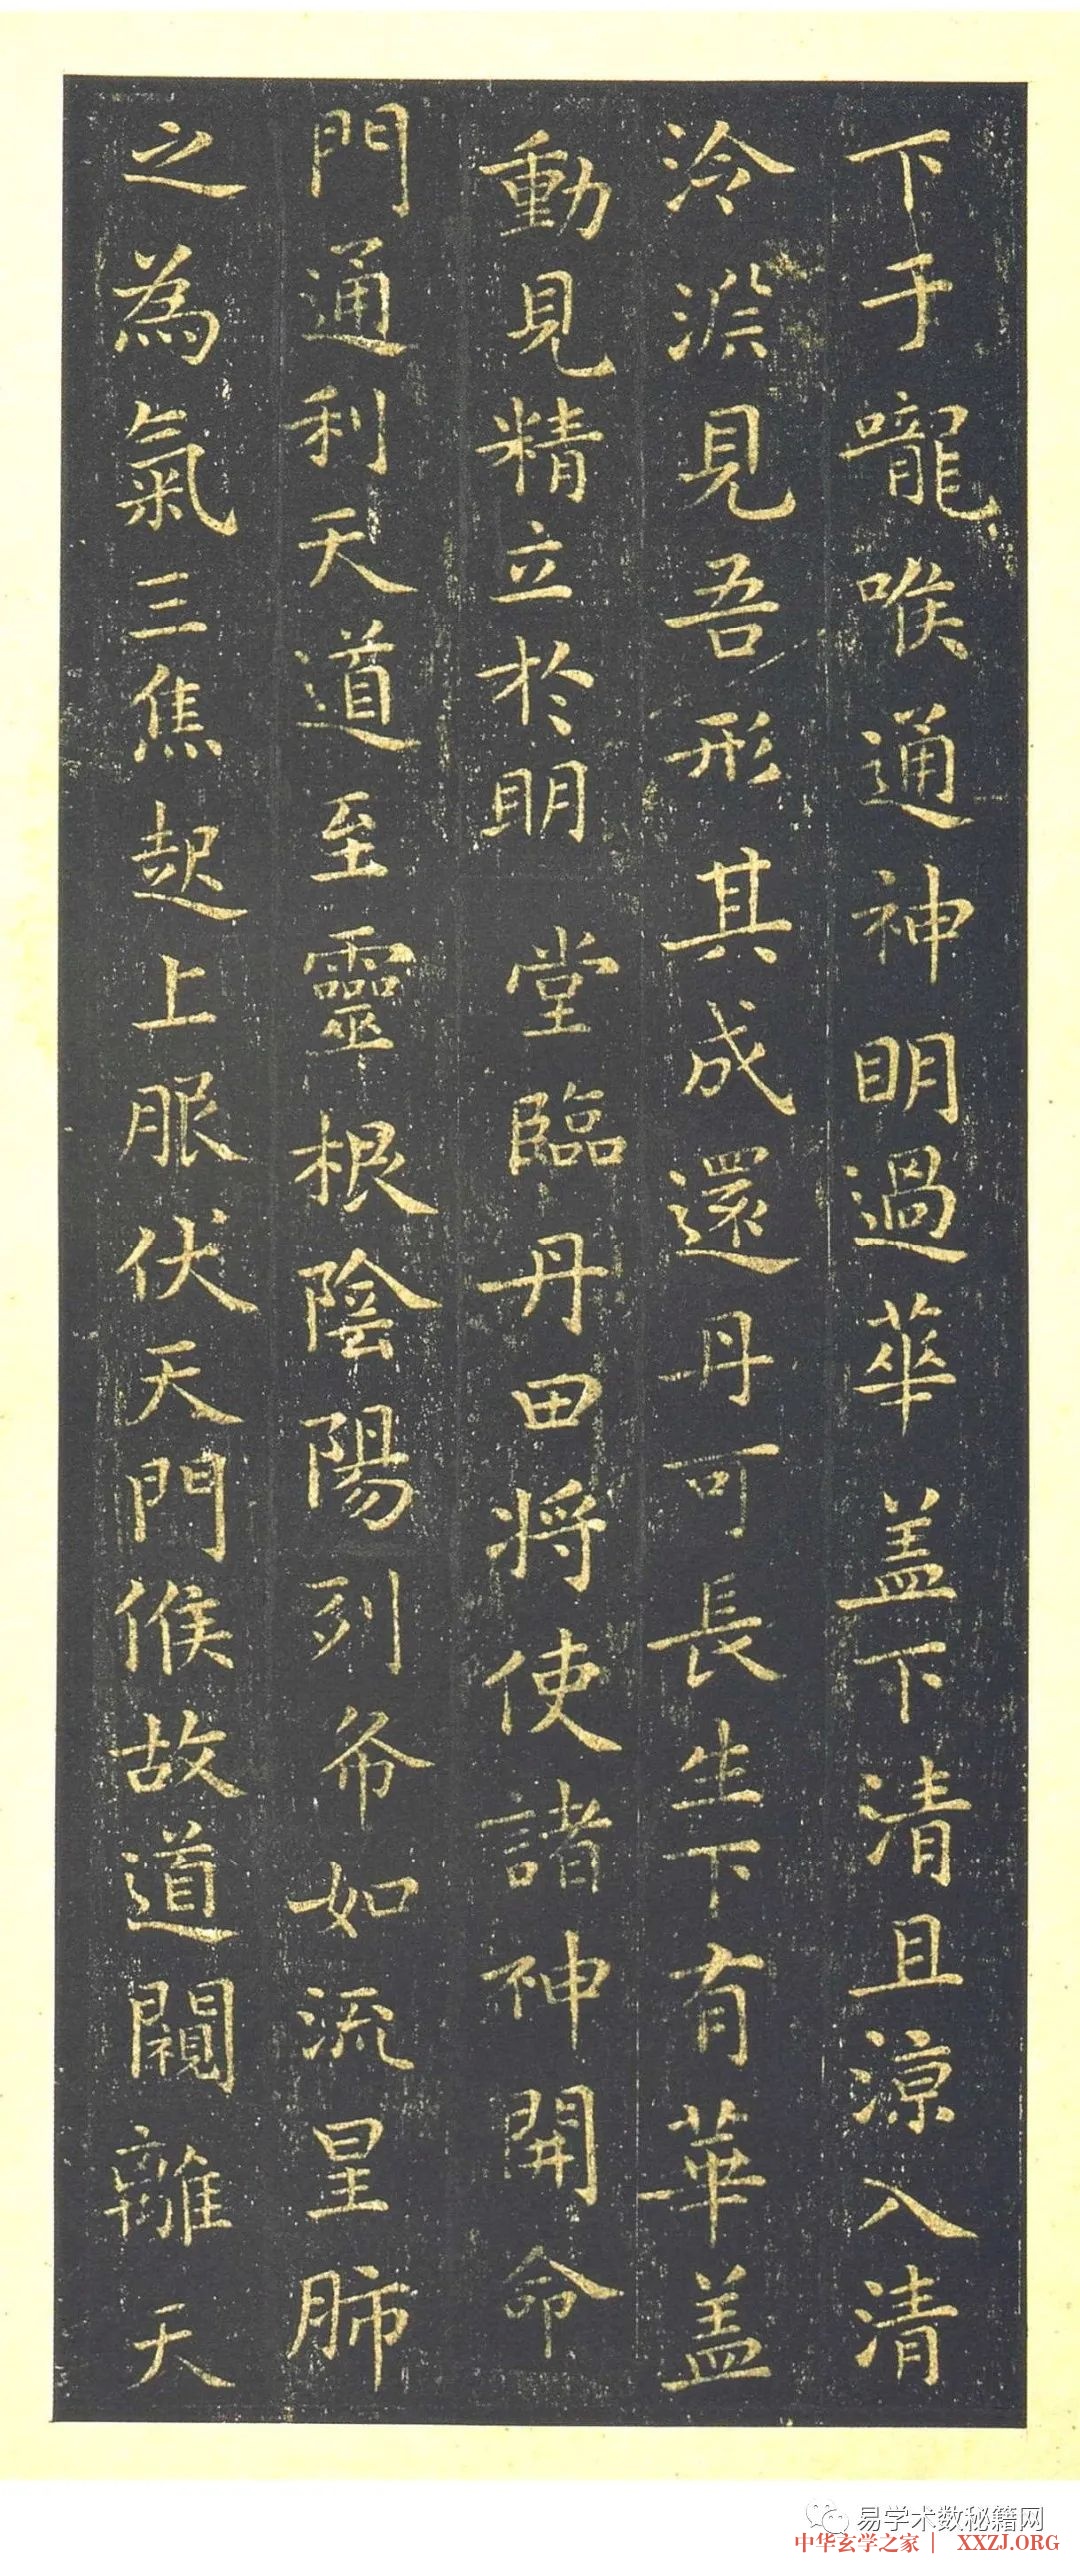 下于嚨喉通神明過華盖下清且涼入清
泠淵見吾形其成還丹可長生下有華盖
動見精立於明堂臨丹田将使諸神開命
門通利天道至靈根陰陽列布如流星肺
之為氣三焦起上服伏天門候故道闚離天
易学术数秘籍网
中华玄学之家｜ XXZJ.ORG